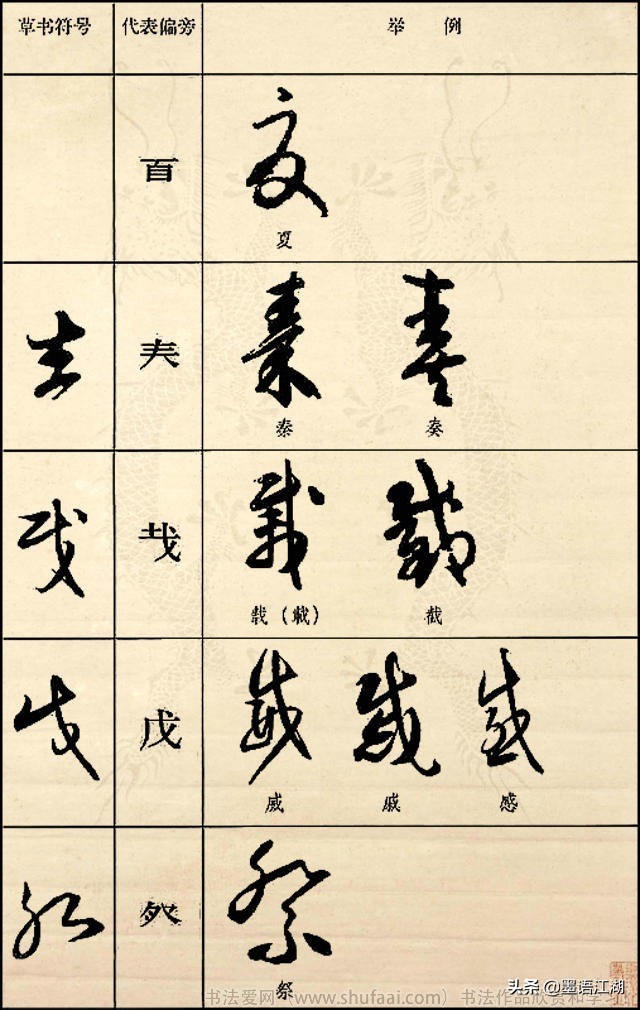 草书符号 代表偏旁 举例
百 夏
夏
𡗗 秦 奏
秦 奏
𢦏 载 截
载（載） 截
戊 威 戚 感
威 戚 感
祭
祭
头条 @墨语江湖
书法爱网（www.shufaai.com） 书法作品欣赏和学习